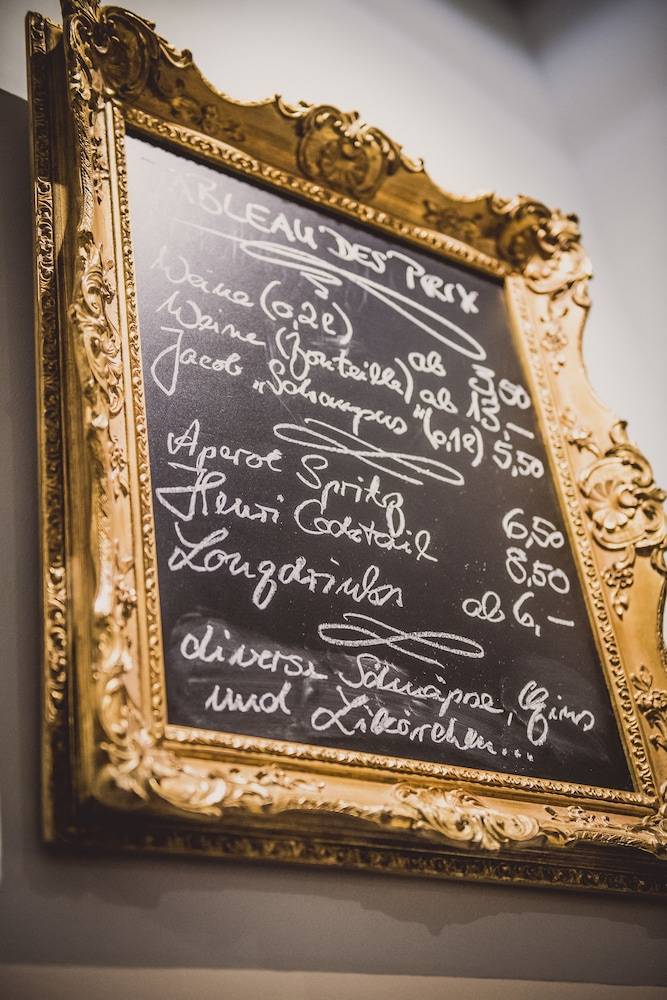 TABLEAU DES PRIX
Weine (0,2l) ab 3,50
Weine (bouteille) ab 13,–
Jacob „Schampus“ (0,1l) 5,50
Aperol Spritz 6,50
Henri Cocktail 8,50
Longdrinks ab 6,–
diverse Schnäpse, Gins
und Likörchen...